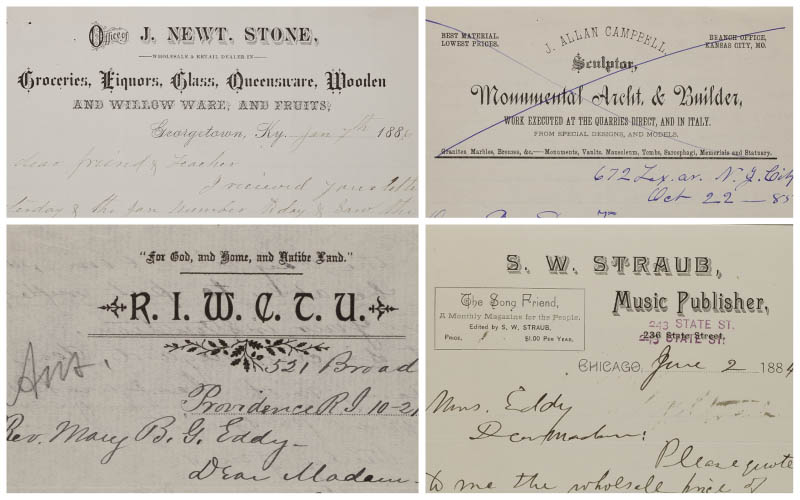 Office of J. NEWT. STONE,
WHOLESALE & RETAIL DEALER IN
Groceries, Liquors, Glass, Queensware, Wooden
AND WILLOW WARE, AND FRUITS,
Georgetown, Ky. Jan 7th 188
dear friend & Teacher
I received yours
& the Jan number & saw the
BEST MATERIAL.
LOWEST PRICES.
BRANCH OFFICE,
KANSAS CITY, MO.
J. ALLAN CAMPBELL,
Sculptor,
Monumental Archt. & Builder,
WORK EXECUTED AT THE QUARRIES DIRECT, AND IN ITALY.
FROM SPECIAL DESIGNS, AND MODELS.
Granites, Marbles, Bronzes, &c.—Monuments, Vaults, Mausoleum, Tombs, Sarcophagi, Memorials and Statuary.
672 Lex. av. N.Y. City
Oct 22 — 85
"For God, and Home, and Native Land."
R. I. W. C. T. U.
Ans.
521 Broad
Providence R I 10-21
Rev. Mary B. G. Eddy-
Dear Madam-
S. W. STRAUB,
Music Publisher,
The Song Friend,
A Monthly Magazine for the People.
Edited by S. W. STRAUB.
PRICE, $1.00 PER YEAR.
243 STATE ST.
236 State Street,
243 STATE ST.
CHICAGO, June 2 1884
Mrs. Eddy
Dear Madam:
Please quote
to me the wholesale price of